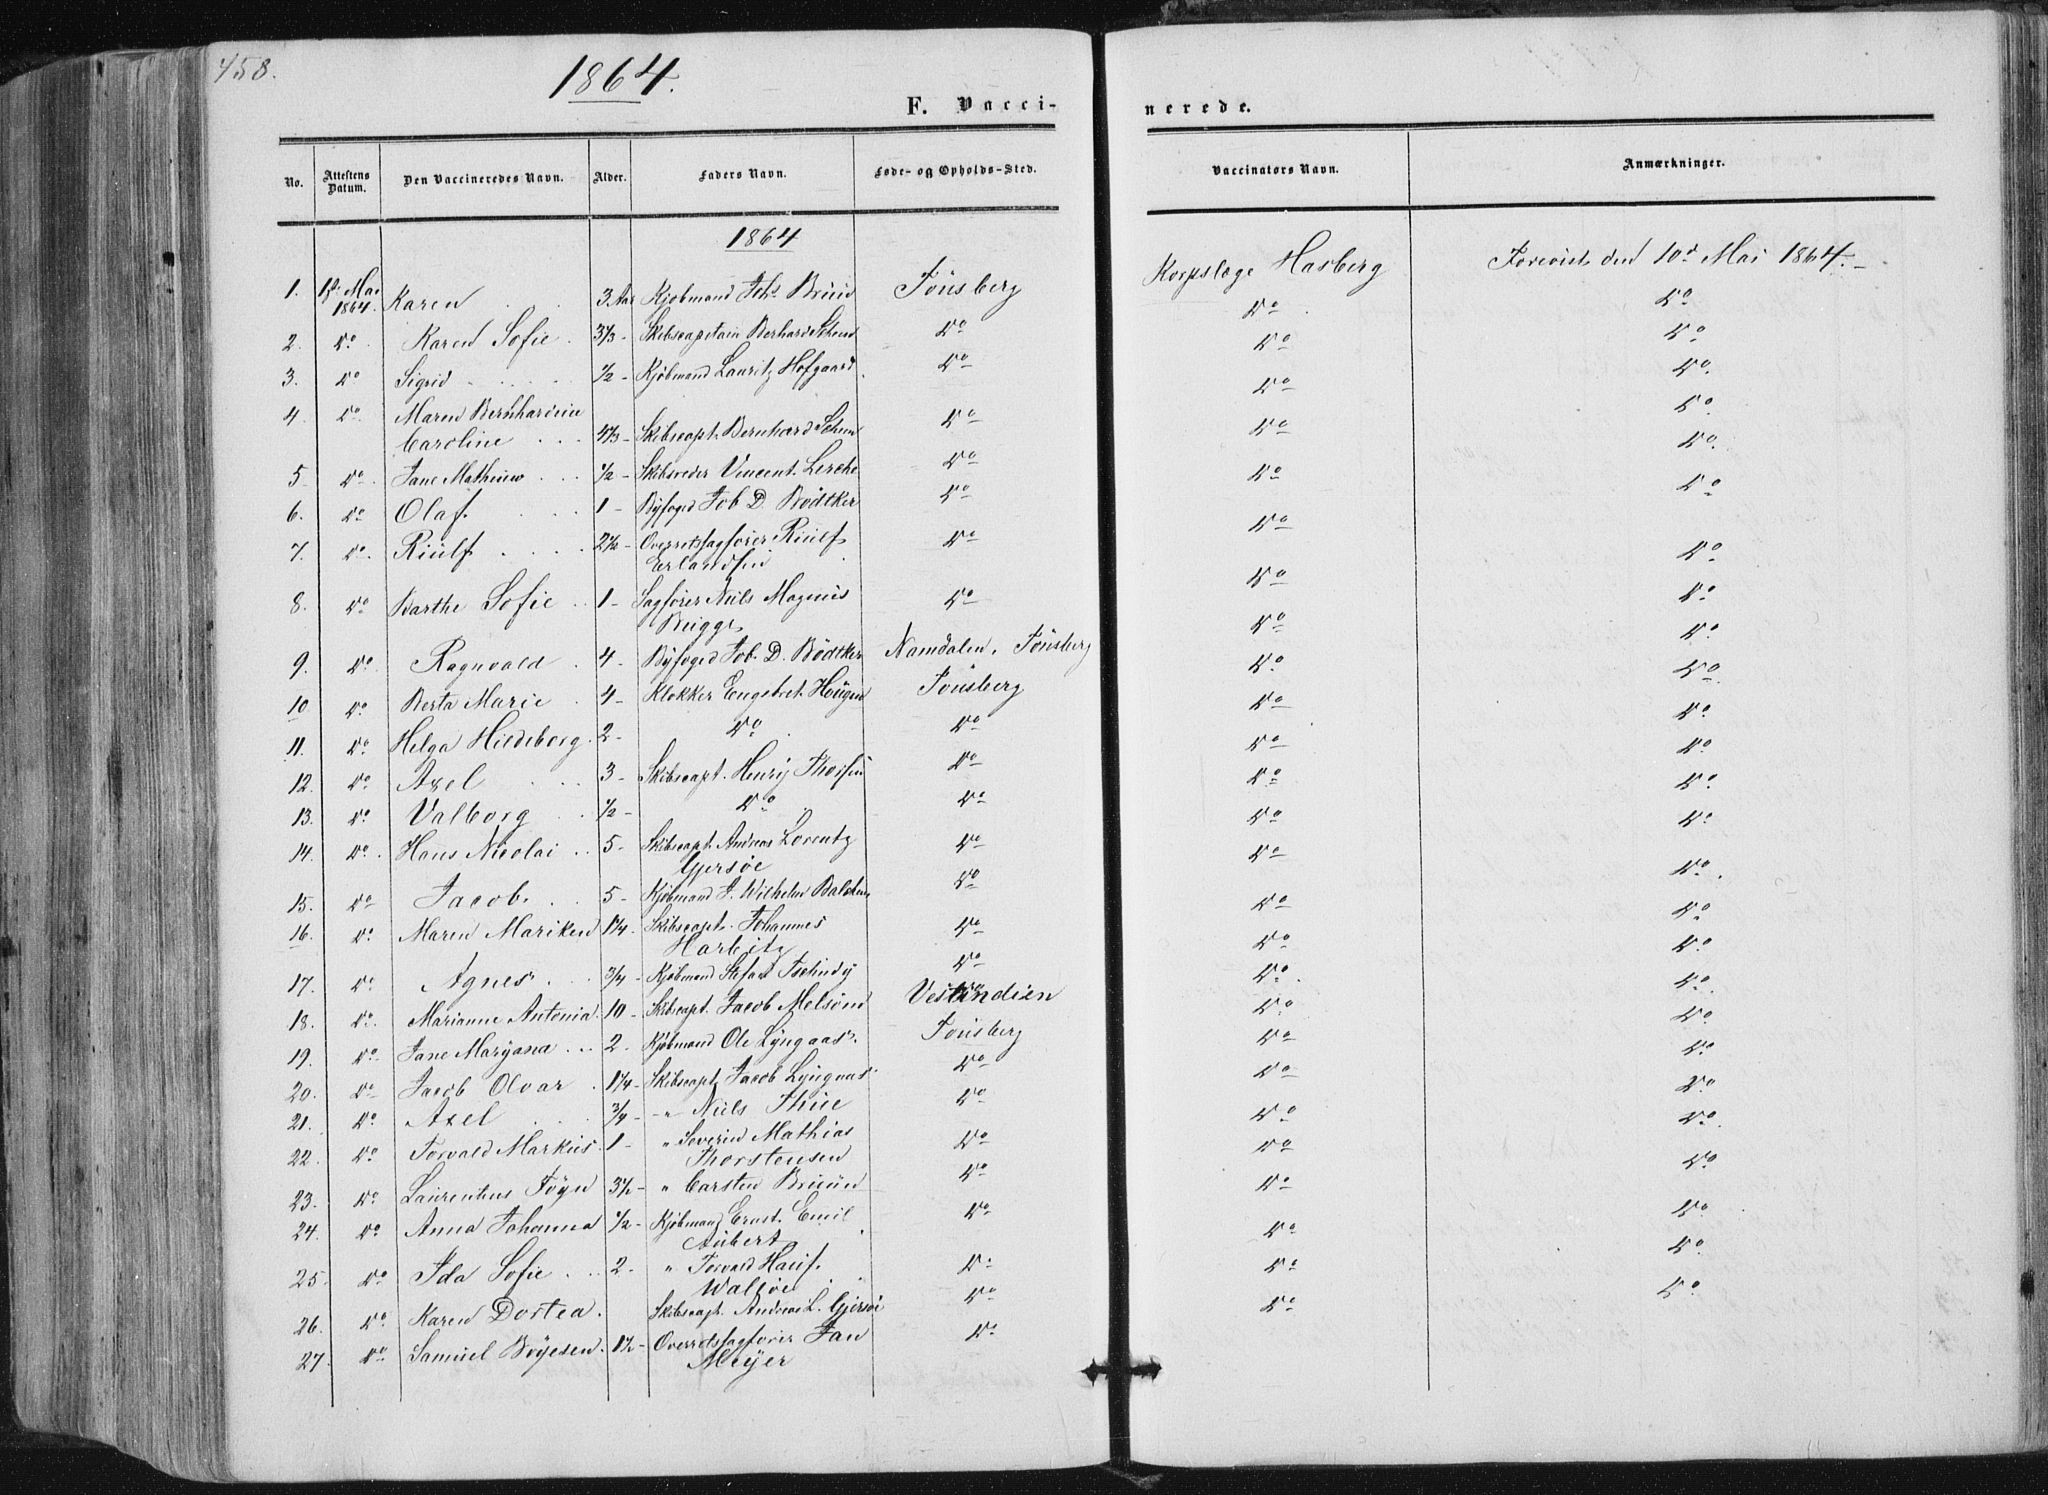 458.
1864.
F. Vacci-
nerede.
No. Attestens Datum. Den Vaccineredes Navn. Alder. Faders Navn. Føde- og Opholds-Sted. Vaccinators Navn. Anmærkninger.
1864
1. Mai 1864. Karen 3 Aar Kjøbmand Joh. Bruun Tønsberg Korpslæge Hasberg Forevist den 10d Mai 1864.
2. Do Karen Sofie 3⅓ Skibscapitain Berhard Do Do Do
3. Do Sigrid ½ Kjøbmand Lauritz Hofgaard Do Do Do
4. Do Maren Bernhardine
Caroline 4⅓ Skibscapt. Bernhard Do Do Do
5. Do Jane Mathiuw ½ Skibsreder Vincent Lerche Do Do Do
6. Do Olaf 1 Byfoged Job D. Bødtker Do Do Do
7. Do Riulf 2½ Overretssagfører Riulf
Erlandsen Do Do Do
8. Do Barthe Sofie 1 Sagfører Niels Magnus
Bugge Do Do Do
9. Do Ragnvald 4 Byfoged Job. D. Bødtker Namdalen, Tønsberg Do Do
10 Do Berta Marie 4 Klokker Engebret Hougen Tønsberg Do Do
11. Do Helga Hildeborg 2 Do Do Do Do
12. Do Axel 3 Skibscapt. Henry Thorsen Do Do Do
13. Do Valborg ½ Do Do Do Do
14. Do Hans Nicolai 5 Skibscapt. Andreas Lorentz
Gjersøe Do Do Do
15. Do Jacob 5 Kjøbmand J. Wilhelm Do Do Do
16. Do Maren Mariken 1¼ Skibscapt. Johannes
Harbitz Do Do Do
17. Do Agnes ¾ Kjøbmand Do Do Do
18. Do Marianne Antonia 10 Skibscapt. Jacob Melsom Vestindien Do Do
19. Do Jane Maryana 2. Kjøbmand Ole Lyngaas Tønsberg Do Do
20. Do Jacob Olvar 1¼ Skibscapt. Jacob Lyngaas Do Do Do
21. Do Axel ¾ " Niels Thue Do Do Do
22. Do Torvald Markus 1 " Severin Mathias
Thorstensen Do Do Do
23. Do Laurentius Føyn 3½ " Carsten Bruun Do Do Do
24. Do Anna Johanna ½ Kjøbmand Ernst Emil
Aubert Do Do Do
25. Do Ida Sofie 2. "
Walløe Do Do Do
26. Do Karen Dortea Skibscapt. Andreas L. Gjersøe Do Do Do
27. Do Samuel Bøyesen 1½ Overretssagfører Jan
Meyer Do